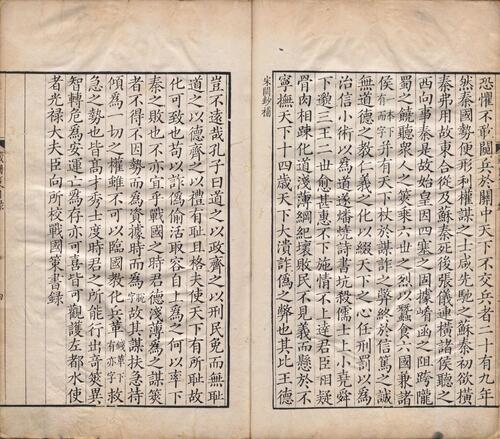 恐懼不敢闚兵於關中天下不交兵者二十有九年
然秦國勢便形利權謀之士咸先馳之蘇秦初欲橫
秦弗用故東合從及蘇秦死後張儀連橫諸侯聽之
西向事秦是故始皇因四塞之固據崤函之阻跨隴
蜀之饒聽衆人之筴乘六世之烈以蠶食六國兼諸
侯有而字并有天下杖於謀詐之弊終於信篤之誠
無道德之教仁義之化以綴天下之心任刑罰以爲
治信小術以爲道遂燔燒詩書坑殺儒士上小堯舜
下邈三王二世愈甚惠不下施情不上達君臣相疑
骨肉相疎化道淺薄綱紀壞敗民不見義而懸於不
寧撫天下十四歲天下大潰詐僞之弊也其比王德
豈不遠哉孔子曰道之以政齊之以刑民免而無恥
道之以德齊之以禮有恥且格夫使天下有所恥故
化可致也苟以詐僞偷活取容自上爲之何以率下
秦之敗也不亦宜乎戰國之時君德淺薄爲之謀筴
者不得不因勢而爲資據時而爲脫字故其謀扶急持
傾爲一切之權雖不可以臨國教化兵革錢革下有亦字救
急之勢也皆高才秀士度時君之所能行出奇筴異
智轉危爲安運亡爲存亦可喜皆可觀護左都水使
者光祿大夫臣向所校戰國策書錄